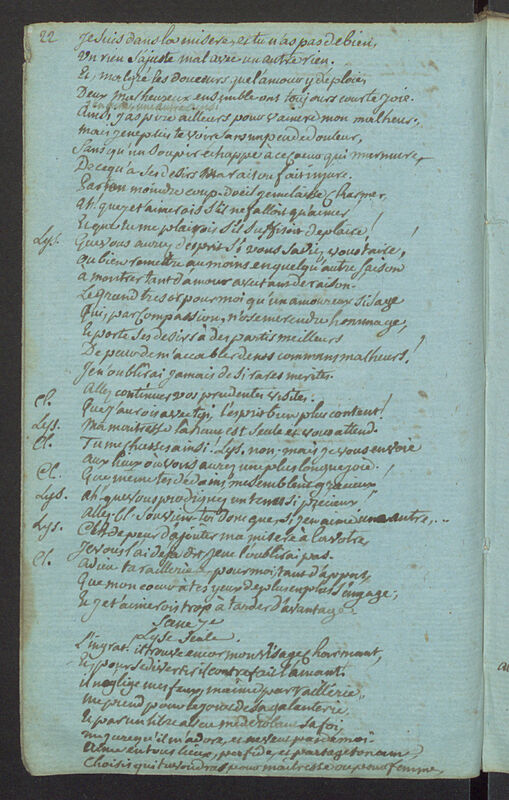 22
Je suis dans la misere, et tu n'as pas de bien,
Un rien s'ajuste mal avec un autre rien.
Et malgré les douceurs que l'amour y déploie,
Deux malheureux ensemble ont toujours courte joie.
Ainsi j'aspire ailleurs pour vaincre mon malheur,
mais je ne puis te voir sans un peu de douleur,
Sans qu'un soupir échappe à ce coeur qui murmure,
De ce qu'a ses desirs ma raison fait injure.
a ton moindre coup d'oeil je me laisse charmer,
ah. que je t'aimerois s'il ne falloit qu'aimer
Et que tu me plairois s'il suffisoit de plaire!
Lys. Que vous auriez d'esprit si vous saviez vous taire,
ou bien remettre au moins en quelqu'autre saison
a montrer tant d'amour avec tant de raison.
Le grand tresor pour moi qu'un amoureux si sage
Qui, par compassion, n'ose me rendre hommage,
Et porte ses desirs à des partis meilleurs
De peur de m'accabler de nos communs malheurs!
Je n'oublirai jamais de si rares merites.
Allez continuer vos prudentes visites.
Cl. Que j'aurois avec toi l'esprit bien plus content!
Lys. Ma maitresse là haut est seule et vous attend.
Cl. Tu me chasses ainsi! Lys. non, mais je vous envoie
aux lieux où vous aurez une plus longue joie.
Cl. Que meme tes dedains me semblent gracieux!
Lys. ah. que vous prodiguez un tems si précieux!
Allez. Cl. Souviens-toi donc que, si j'en aime une autre,..
Lys. C'est de peur d'ajouter ma misere à la votre
Je vous l'ai deja dit, je ne l'oublirai pas.
Cl. adieu ta raillerie a pour moi tant d'appas,
Que mon coeur à tes yeux de plus en plus s'engage,
Et je t'aimerois trop à tarder d'avantage
Scene 7e
Lyse Seule.
L'ingrat. il trouve encor mon visage charmant,
Et pour se divertir il contrefait l'amant.
il neglige mes feux, m'aime par raillerie,
me prend pour le jouet de sa galanterie
Et par un libre aveu me volant sa foi,
me jure qu'il m'adore, et ne veut pas de moi
Aime en tous lieux, perfide, et partage ton ame,
Choisis qui tu voudras pour maitresse ou pour femme,